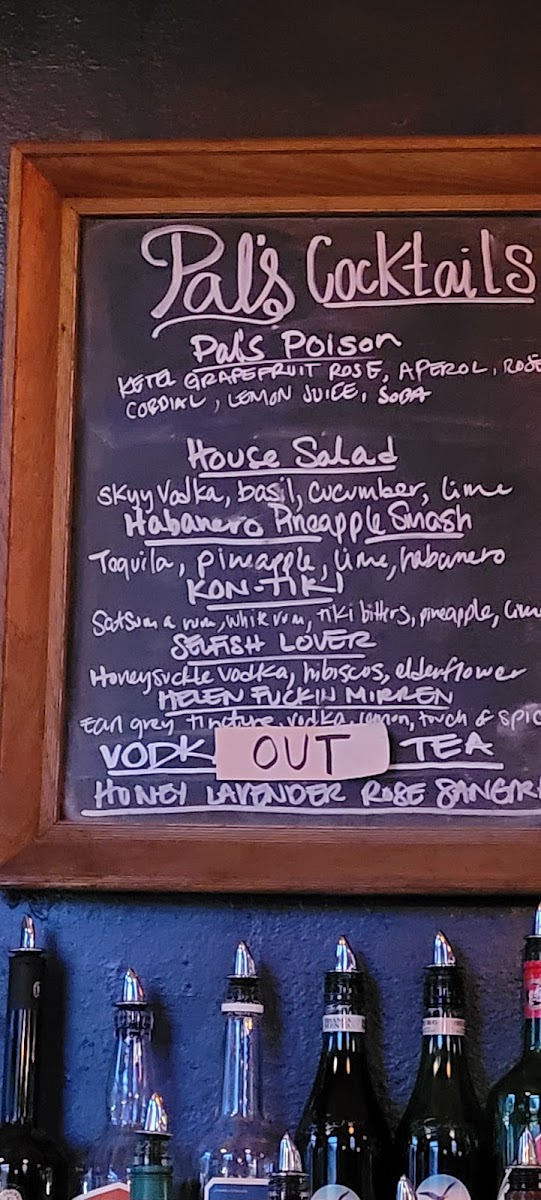 Pal's Cocktails
Pal's Poison
KETEL GRAPEFRUIT ROSE, APEROL, ROSE
CORDIAL, LEMON JUICE, SODA
House Salad
Skyy Vodka, basil, cucumber, lime
Habanero Pineapple Smash
Tequila, pineapple, lime, habanero
KON-TIKI
Satsuma rum, white rum, tiki bitters, pineapple, lime
SELFISH LOVER
Honeysuckle vodka, hibiscus, elderflower
HELEN FUCKIN MIRREN
Earl grey tincture, vodka, lemon, touch of spic
VODK OUT TEA
HONEY LAVENDER ROSE SANGR